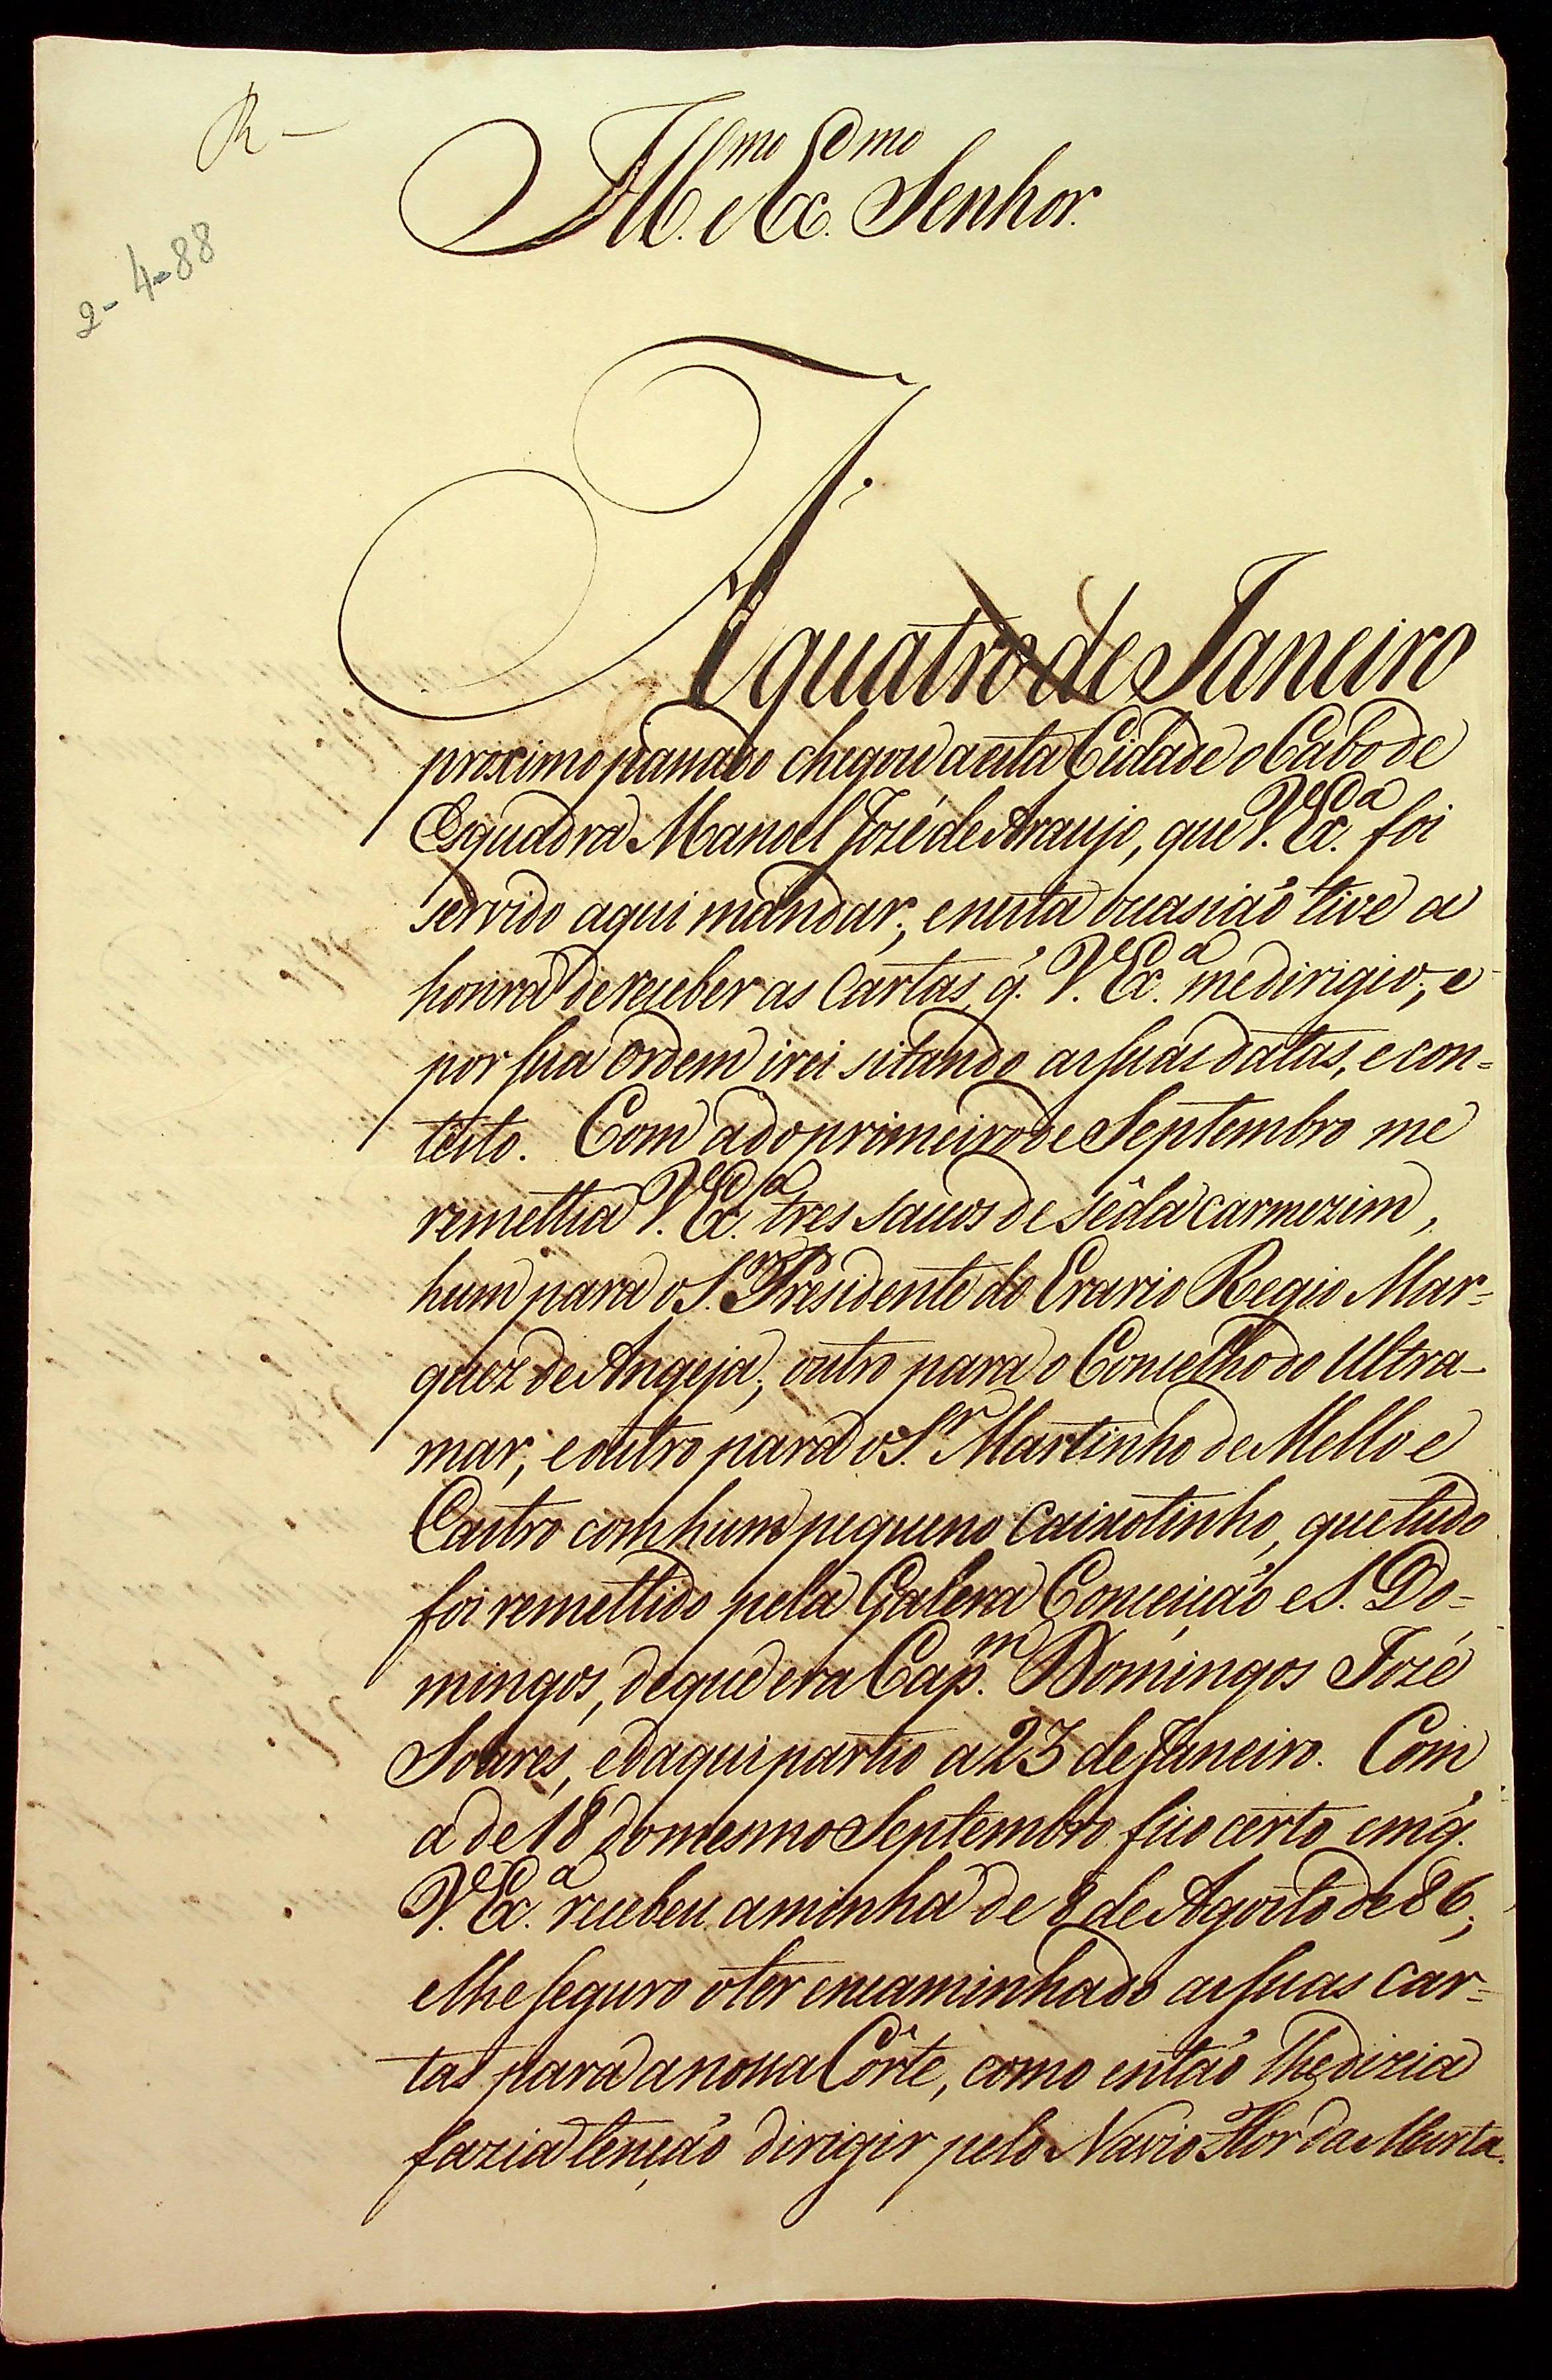 R —
Ill.mo e Ex.mo Senhor.
2-4-88
A quatro de Janeiro
proximo passado chegou a esta Cidade o Cabo de
Esquadra Manoel Jozé de Araujo, que V. Ex.a foi
servido aqui mandar; e nesta occasião tive a
honra de receber as Cartas q̃. V. Ex.a me dirigio; e
por sua ordem irei sitando as suas datas, e con-
testo. Com a do primeiro de Septembro me
remettia V. Ex.a tres sacos de sêda carmezim,
hum para o S.r Presidente do Erario Regio Mar-
quez de Angeja; outro para o Concelho do Ultra-
mar; e outro para o S.r Martinho de Mello e
Castro com hum pequeno caixotinho, que tudo
foi remettido pela Galera Conceição e S. Do-
mingos, de que era Cap.m Domingos Jozé
Soares, e daqui partio a 23 de Janeiro. Com
a de 18 do mesmo Septembro fico certo em q̃.
V. Ex.a recebeu a minha de 8 de Agosto de 86;
e lhe seguro o ter encaminhado as suas car-
tas para a nossa Côrte, como então lhe dizia
fazia tenção dirigir pelo Navio Flor da Murta.